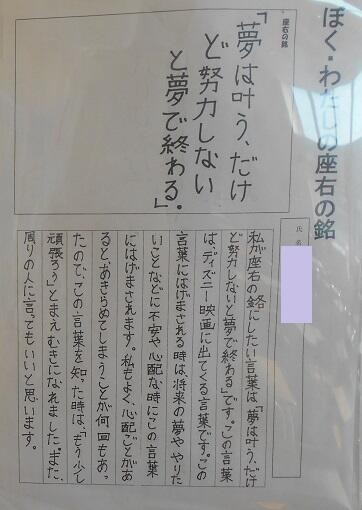 ぼく・わたしの座右の銘
座右の銘
「夢は叶う、だけ
ど努力しない
と夢で終わる」.
氏名
私が座右の銘にしたい言葉は、「夢は叶う、だけ
ど努力しないと夢で終わる」です。この言葉
は、ディズニー映画に出てくる言葉です。この
言葉にはげまされる時は、将来の夢や、やりた
いことなどに不安や心配な時にこの言葉
にはげまされます。私もよく、心配ごとがあ
るとあきらめてしまうことが何回もあっ
たので、この言葉を知った時は、「もう少し
頑張ろう」とまえむきになれました。また、
周りの人に言ってもいいと思います。